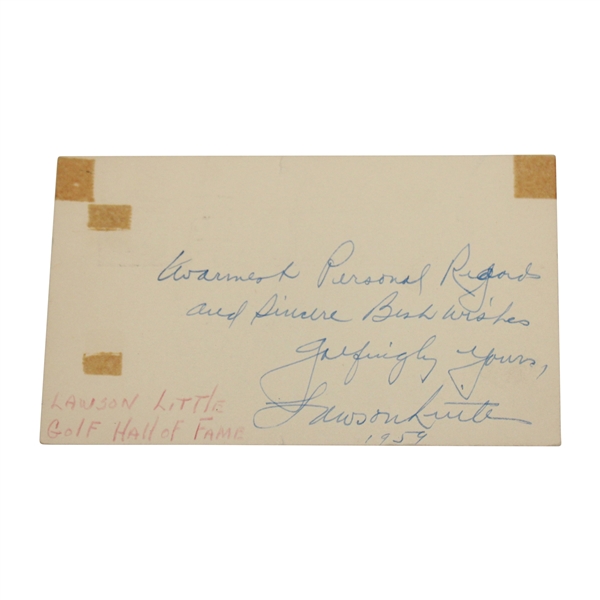 Warmest Personal Regards
and Sincere Best Wishes
Golfingly Yours,
Lawson Little
1959
LAWSON LITTLE
GOLF HALL OF FAME